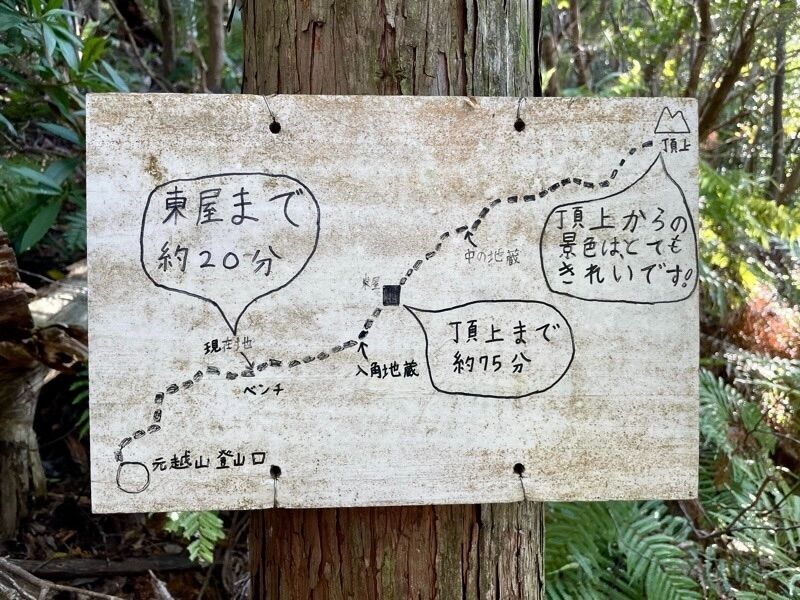 頂上
東屋まで
約20分
頂上からの
景色は、とても
きれいです!
中の地蔵
東屋
頂上まで
約75分
現在地
八角地蔵
ベンチ
元越山登山口